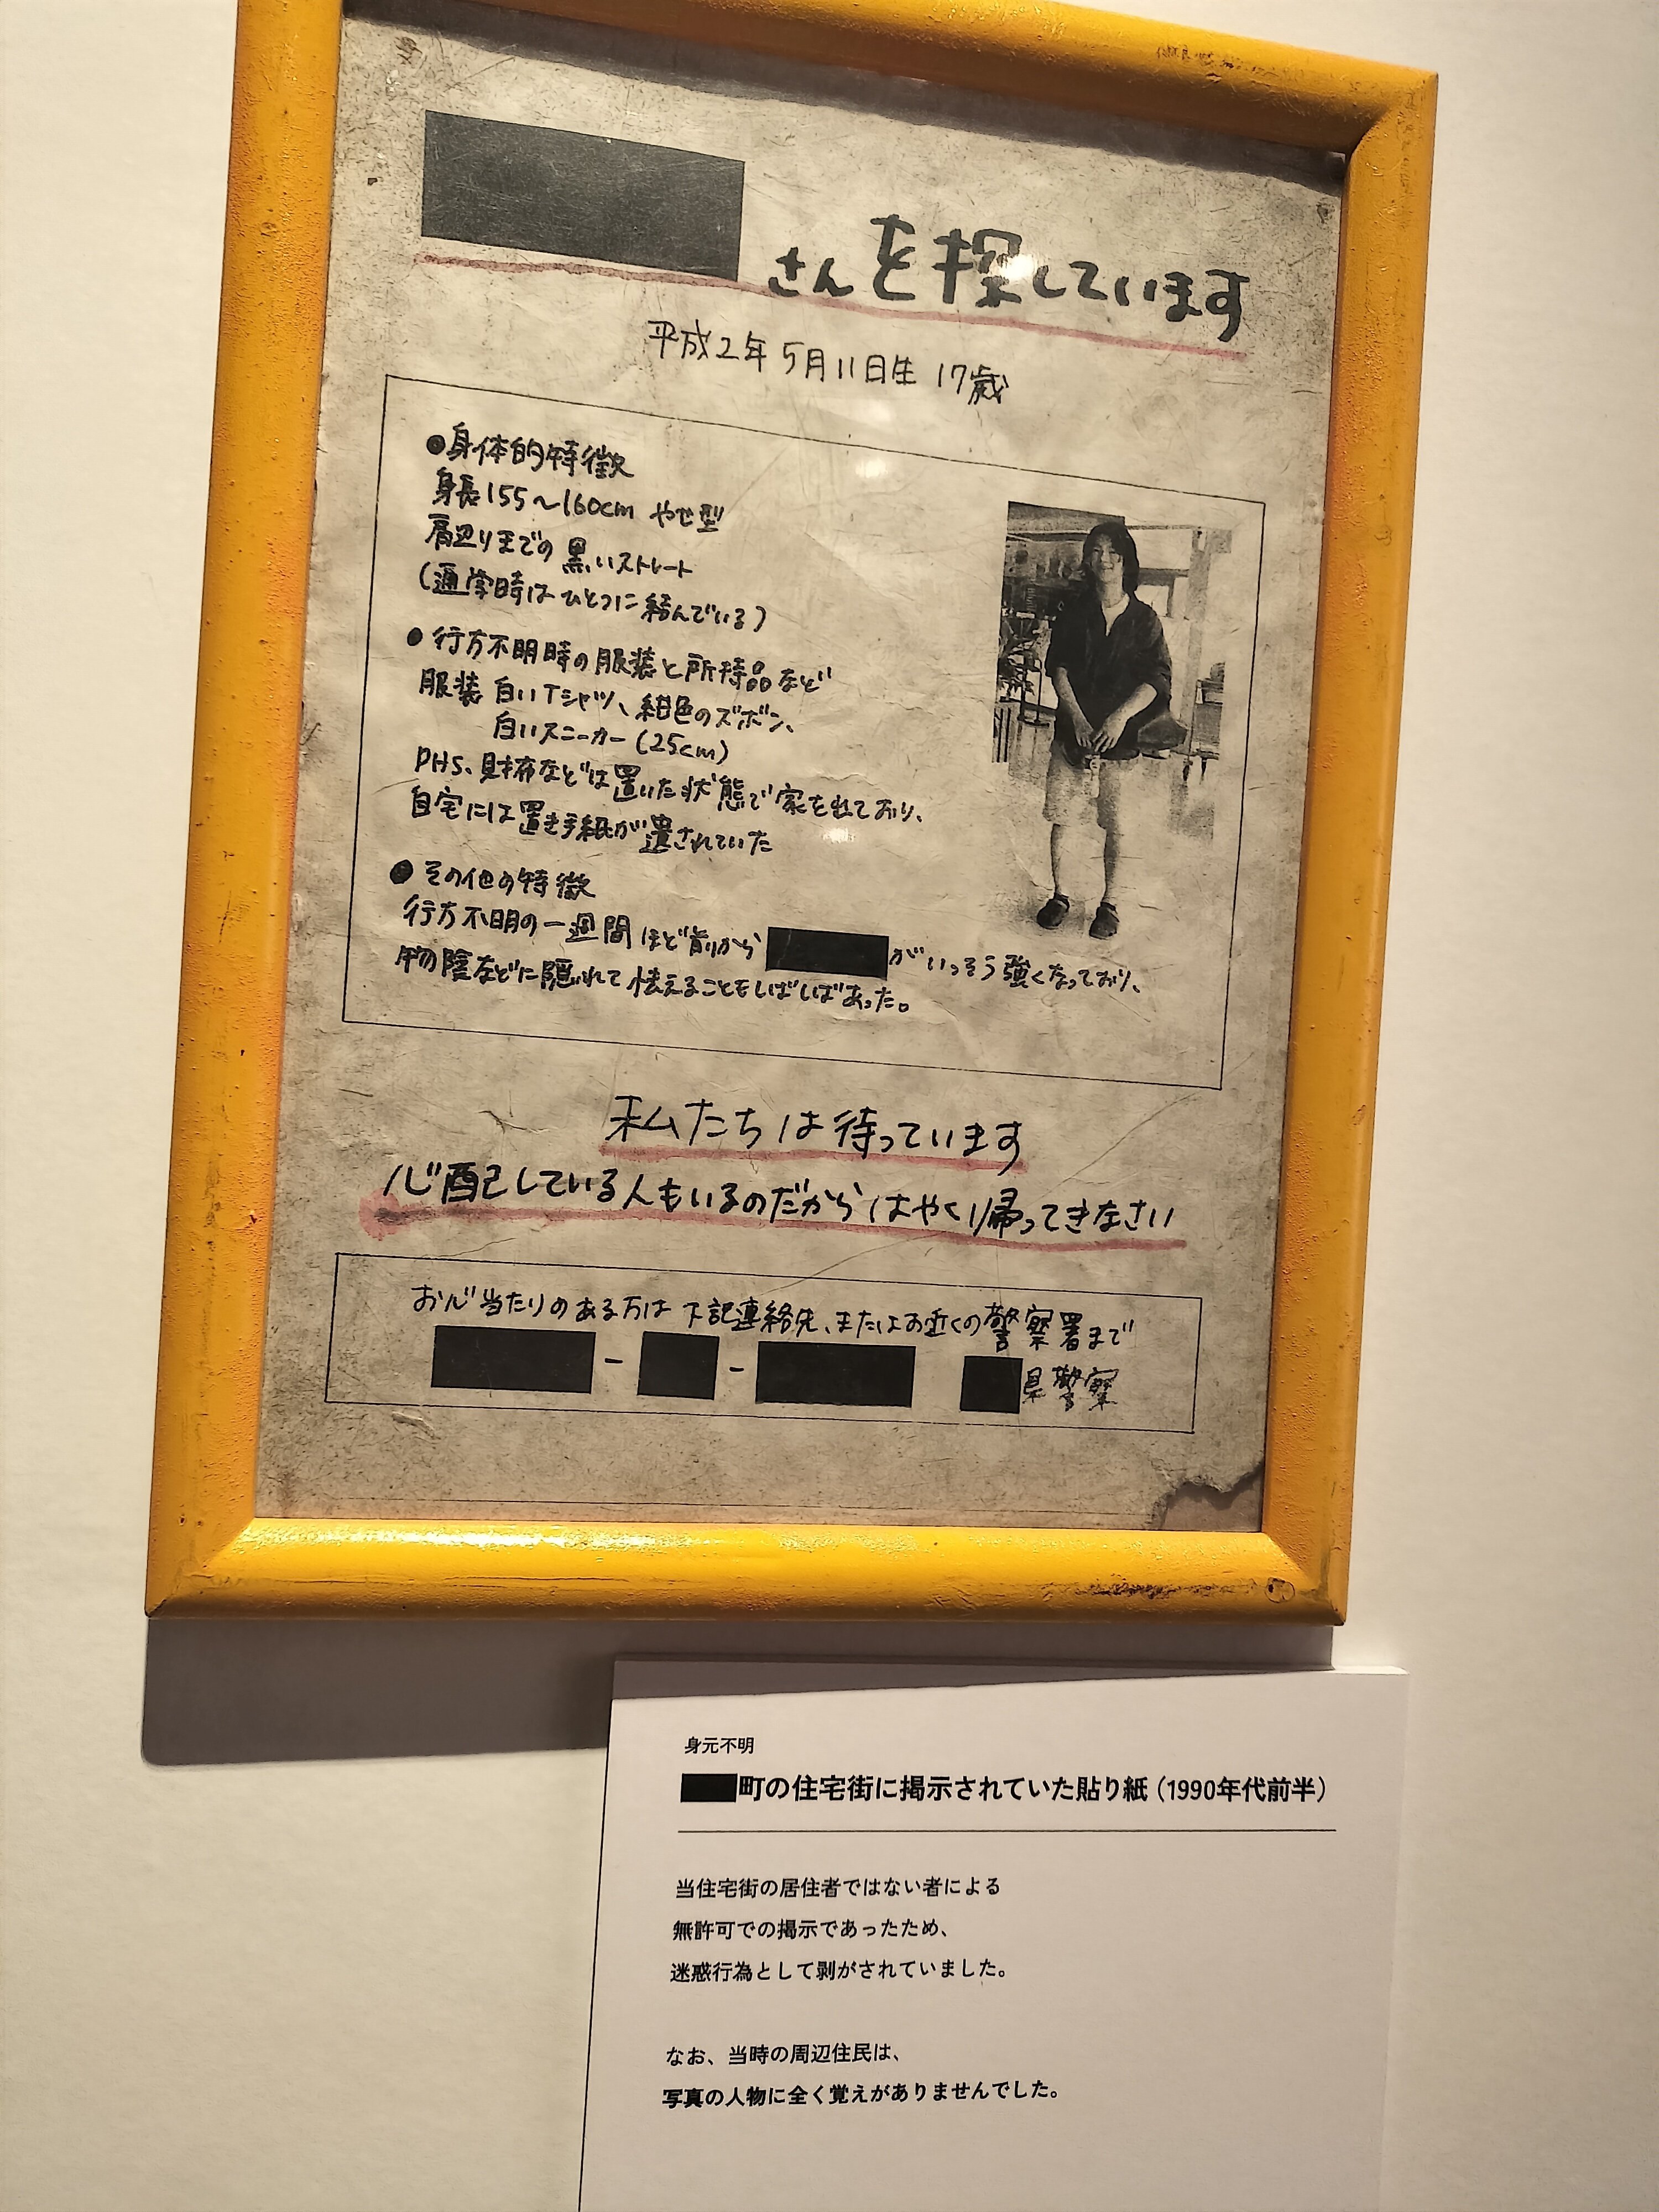 さんを探しています
平成2年5月11日生 17歳
●身体的特徴
身長155～160cm やせ型
肩辺りまでの黒いストレート
(通学時はひとつに結んでいる)
●行方不明時の服装と所持品など
服装 白いTシャツ、紺色のズボン、
白いスニーカー(25cm)
PHS、財布などは置いた状態で家を出ており、
自宅には置き手紙が遺されていた
●その他の特徴
行方不明の一週間ほど前から がいっそう強くなっており、
物陰などに隠れて怯えることもしばしばあった。
私たちは待っています
心配している人もいるのだからはやく帰ってきなさい
お心当たりのある方は下記連絡先、またはお近くの警察署まで
- - 県警察
身元不明
町の住宅街に掲示されていた貼り紙（1990年代前半）
当住宅街の居住者ではない者による
無許可での掲示であったため、
迷惑行為として剥がされていました。
なお、当時の周辺住民は、
写真の人物に全く覚えがありませんでした。